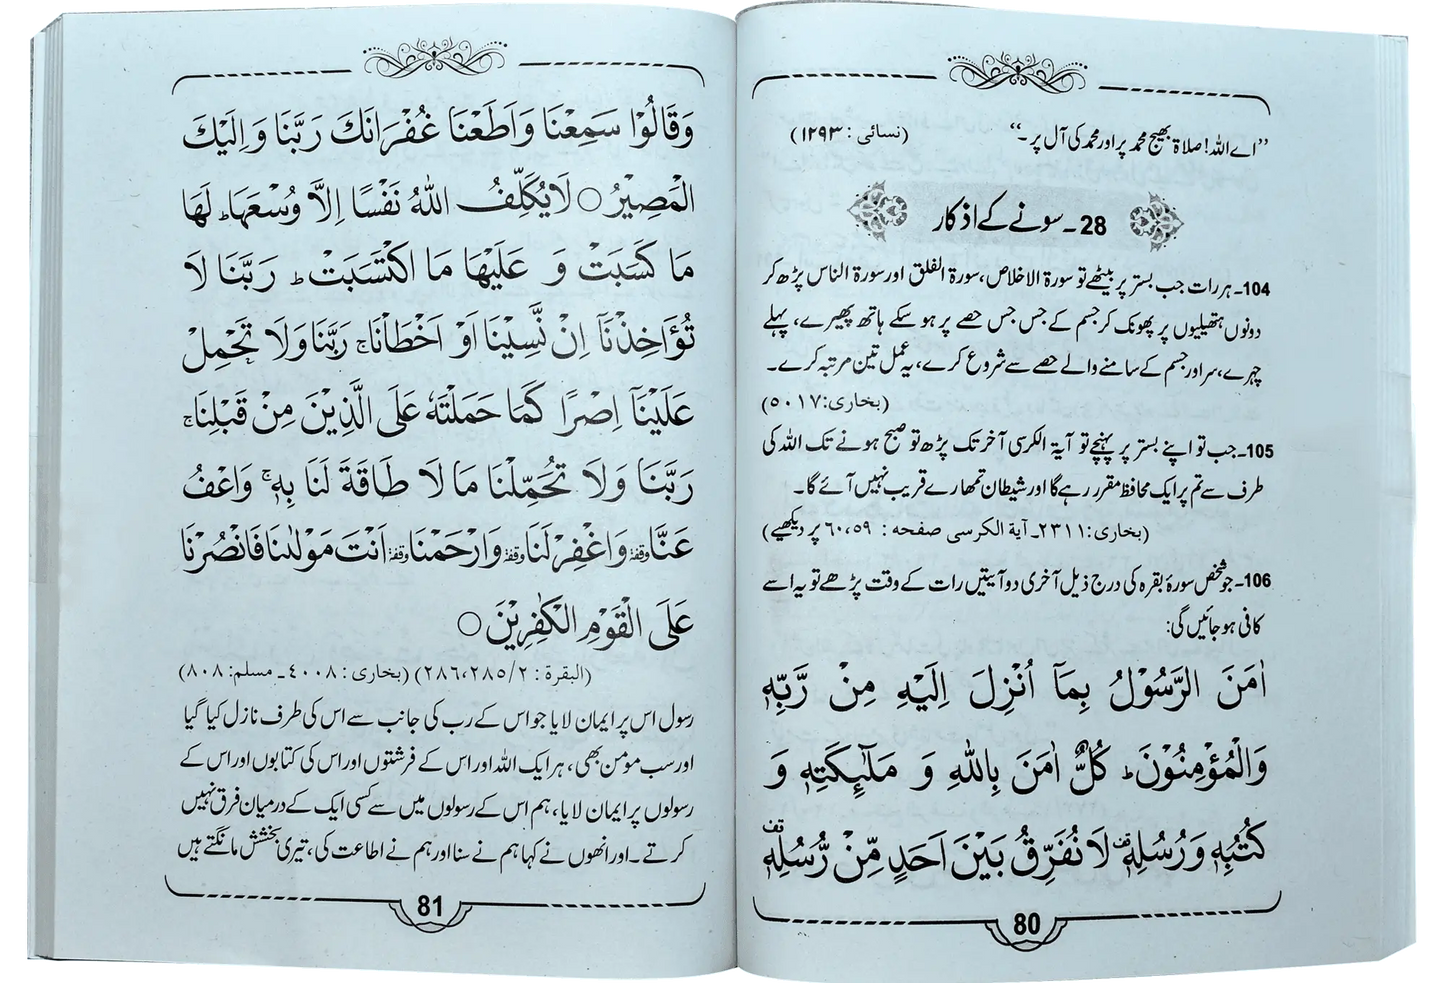 ”اے اللہ! صلاۃ بھیج محمد پر اور محمد کی آل پر۔“ (نسائی : ۱۲۹۳)
28۔ سونے کے اذکار
104۔ ہر رات جب بستر پر بیٹھے تو سورۃ الاخلاص، سورۃ الفلق اور سورۃ الناس پڑھ کر
دونوں ہتھیلیوں پر پھونک کر جسم کے جس جس حصے پر ہو سکے ہاتھ پھیرے، پہلے
چہرے، سر اور جسم کے سامنے والے حصے سے شروع کرے، یہ عمل تین مرتبہ کرے۔
(بخاری: ۵۰۱۷)
105۔ جب تو اپنے بستر پر پہنچے تو آیۃ الکرسی آخر تک پڑھ تو صبح ہونے تک اللہ کی
طرف سے تم پر ایک محافظ مقرر رہے گا اور شیطان تمھارے قریب نہیں آئے گا۔
(بخاری: ۲۳۱۱۔ آیة الکرسی صفحہ : ۶۰،۵۹ پر دیکھیے)
106۔ جو شخص سورۂ بقرہ کی درج ذیل آخری دو آیتیں رات کے وقت پڑھے تو یہ اسے
کافی ہو جائیں گی:
اٰمَنَ الرَّسُوْلُ بِمَآ اُنْزِلَ اِلَيْهِ مِنْ رَّبِّهٖ
وَالْمُؤْمِنُوْنَ ؕ كُلٌّ اٰمَنَ بِاللّٰهِ وَ مَلٰٓىِٕكَتِهٖ وَ
كُتُبِهٖ وَرُسُلِهٖ ۫ لَا نُفَرِّقُ بَيْنَ اَحَدٍ مِّنْ رُّسُلِهٖ ۫
80
وَقَالُوْا سَمِعْنَا وَاَطَعْنَا غُفْرَانَكَ رَبَّنَا وَاِلَيْكَ
الْمَصِيْرُ ○ لَا يُكَلِّفُ اللّٰهُ نَفْسًا اِلَّا وُسْعَهَا ؕ لَهَا
مَا كَسَبَتْ وَ عَلَيْهَا مَا اكْتَسَبَتْ ؕ رَبَّنَا لَا
تُؤَاخِذْنَآ اِنْ نَّسِيْنَآ اَوْ اَخْطَاْنَا ۚ رَبَّنَا وَلَا تَحْمِلْ
عَلَيْنَآ اِصْرًا كَمَا حَمَلْتَهٗ عَلَى الَّذِيْنَ مِنْ قَبْلِنَا ۚ
رَبَّنَا وَلَا تُحَمِّلْنَا مَا لَا طَاقَةَ لَنَا بِهٖ ۚ وَاعْفُ
عَنَّا وقفة وَاغْفِرْ لَنَا وقفة وَارْحَمْنَا وقفة اَنْتَ مَوْلٰىنَا فَانْصُرْنَا
عَلَى الْقَوْمِ الْكٰفِرِيْنَ ○
(البقرة : ۲۸۶،۲۸۵/۲) (بخاری : ۴۰۰۸۔ مسلم: ۸۰۸)
رسول اس پر ایمان لایا جو اس کے رب کی جانب سے اس کی طرف نازل کیا گیا
اور سب مومن بھی، ہر ایک اللہ اور اس کے فرشتوں اور اس کی کتابوں اور اس کے
رسولوں پر ایمان لایا، ہم اس کے رسولوں میں سے کسی ایک کے درمیان فرق نہیں
کرتے۔ اور انھوں نے کہا ہم نے سنا اور ہم نے اطاعت کی، تیری بخشش مانگتے ہیں
81